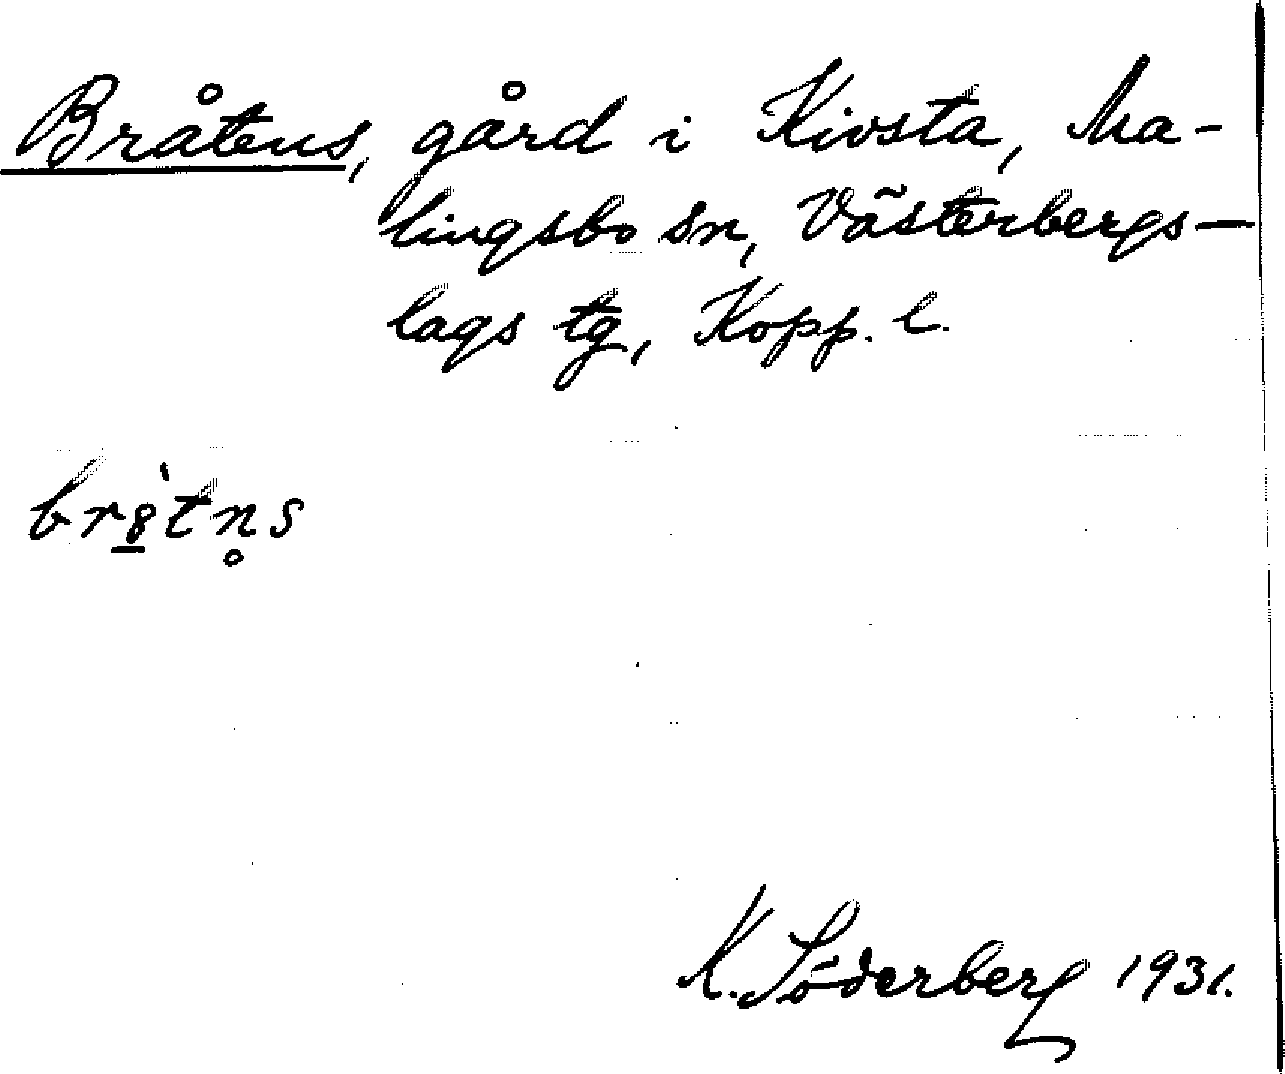 Bråtens, gård i Kivsta, Ma-
lingsbo sn, Västerbergs-
lags tg, Kopp. l.
br8̲̀tn̥s
K. Söderberg 1931.